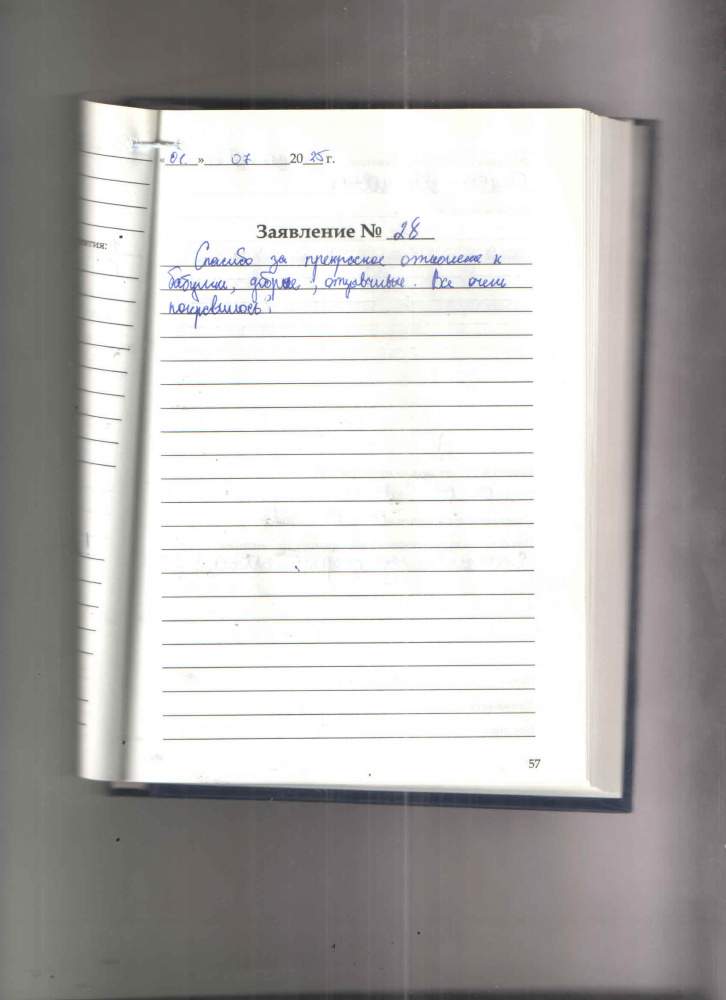 «01» 07 2025 г.
ятия:
Заявление № 28
Спасибо за прекрасное отношение к
бабушке, добрые, отзывчивые. Все очень
понравилось!
57